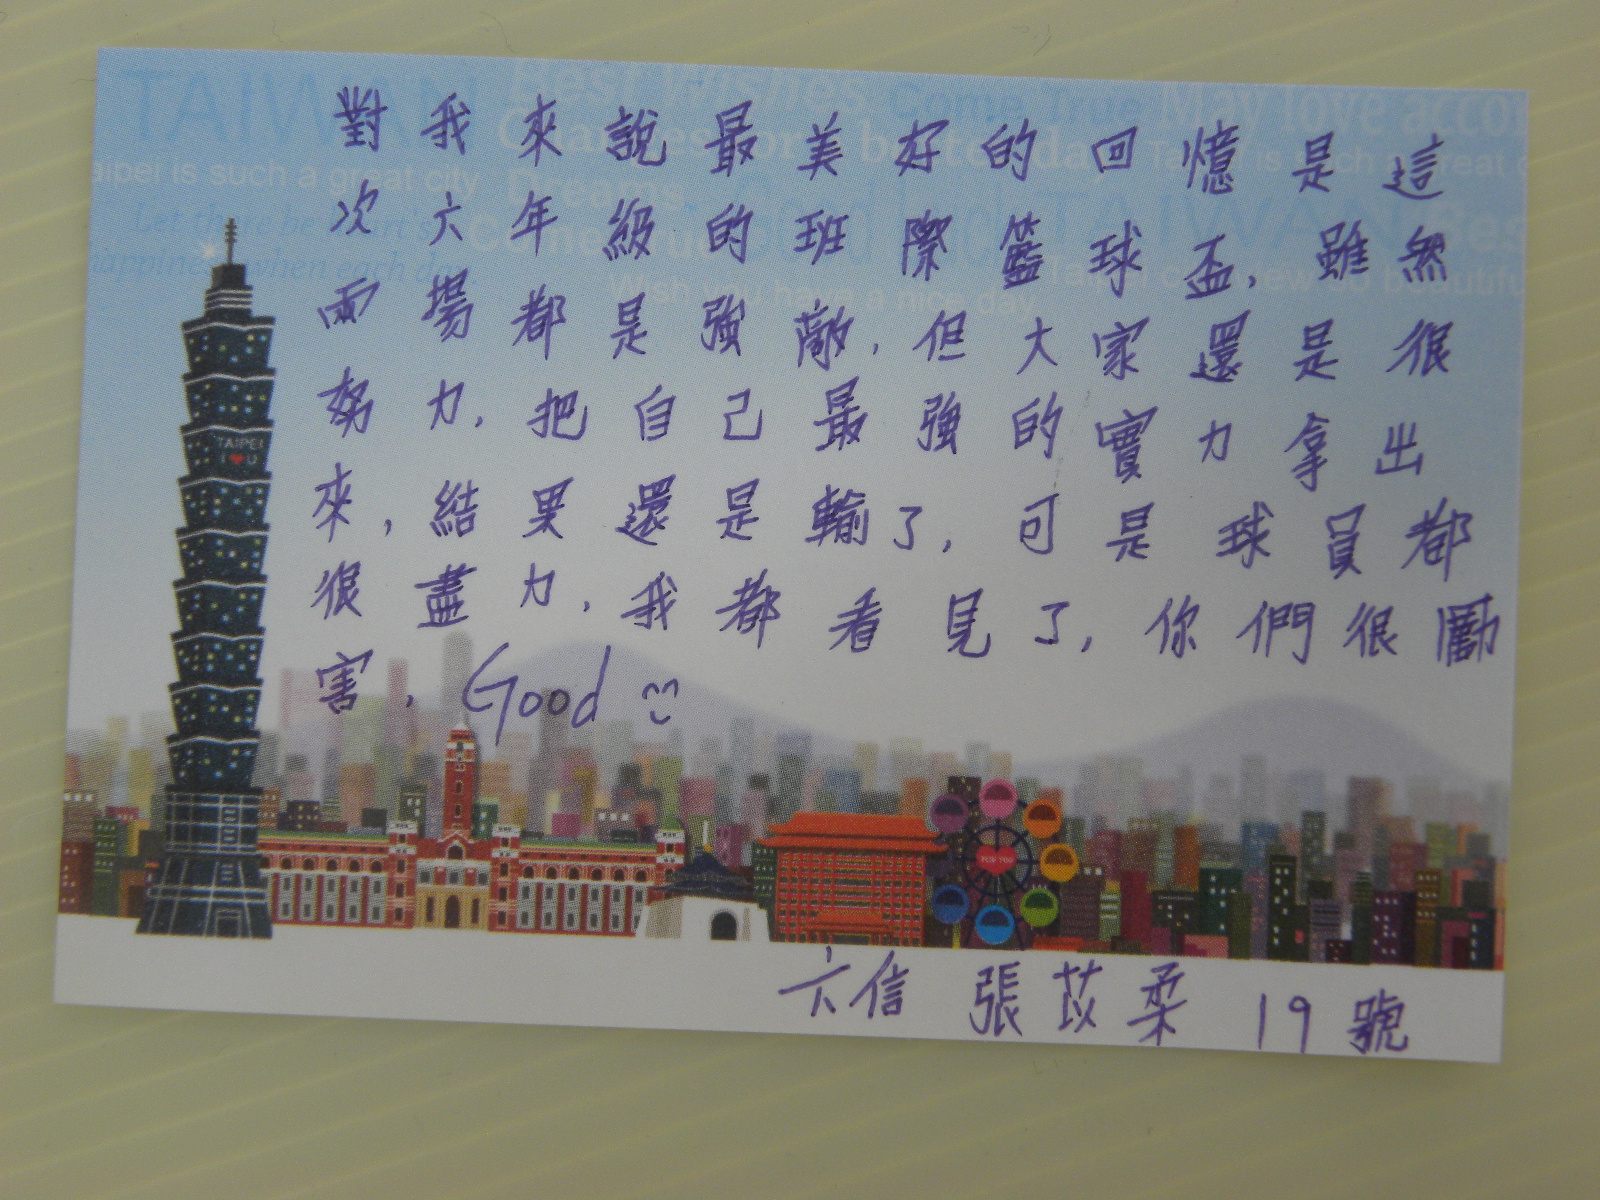 TAIWAN Best Wishes Come True May love accor
aipei is such a great city
Dreams
TAIWAN Bes
Let there be
happiness when each day
Wish you have a nice day
對我來說最美好的回憶是這
次六年級的班際籃球盃,雖然
兩場都是強敵,但大家還是很
努力,把自己最強的實力拿出
來,結果還是輸了,可是球員都
很盡力,我都看見了,你們很勵
害,Good
TAIPEI
I ❤ U
FOR YOU
六信 張苡柔 19號